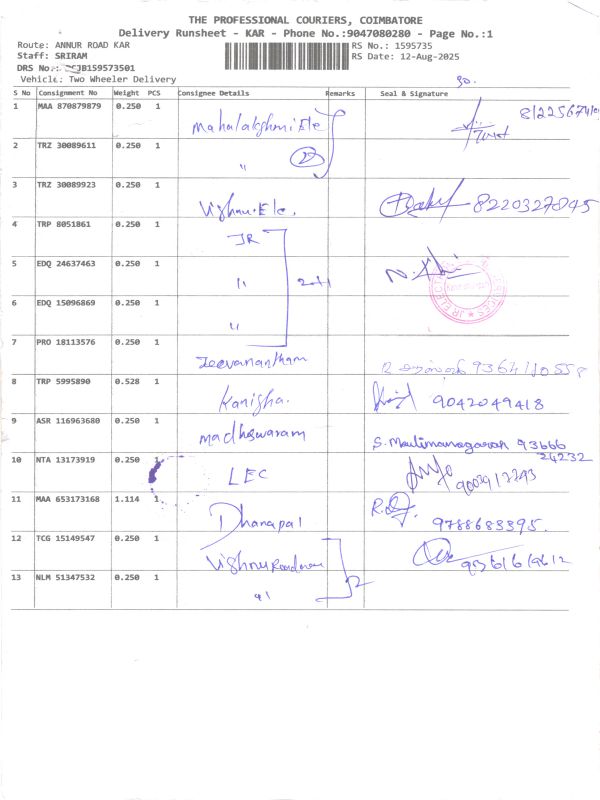 THE PROFESSIONAL COURIERS, COIMBATORE
Delivery Runsheet - KAR - Phone No.:9047080280 - Page No.:1
Route: ANNUR ROAD KAR RS No.: 1595735
Staff: SRIRAM RS Date: 12-Aug-2025
DRS No.: JB159573501
Vehicle: Two Wheeler Delivery
S No Consignment No Weight PCS Consignee Details Remarks Seal & Signature
1 MAA 870879879 0.250 1 Mahalakshmi Ele
2 TRZ 30089611 0.250 1 " 2
3 TRZ 30089923 0.250 1 Vishnu. Ele. 8220327845
4 TRP 8051861 0.250 1 JR
5 EDQ 24637463 0.250 1 "
6 EDQ 15096869 0.250 1 "
7 PRO 18113576 0.250 1 Jeevanantham
8 TRP 5995890 0.528 1 Kanisha. 9042049418
9 ASR 116963680 0.250 1 Madheswaram 93666
24232
10 NTA 13173919 0.250 1 LEC
11 MAA 653173168 1.114 1 Dhanapal 9788683395.
12 TCG 15149547 0.250 1 Vishnu
13 NLM 51347532 0.250 1 "